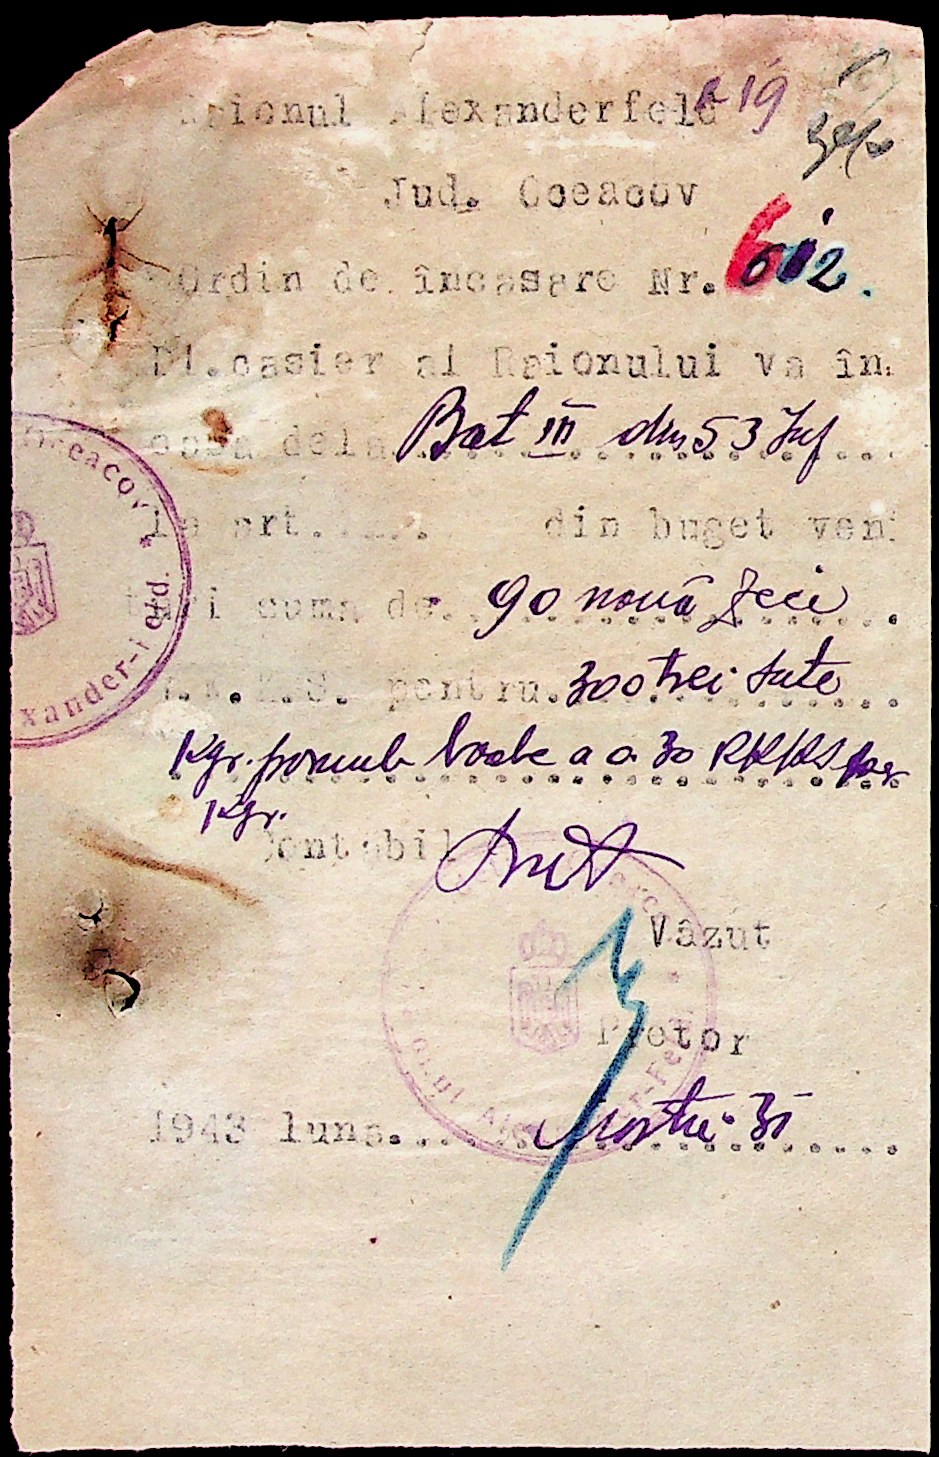 Raionul Alexanderfeld 19
Jud. Oceacov
Ordin de încasare Nr. 602.
Dl.casier al Raionului va în
casa dela Bat III din 53 Inf
la art..... din buget veni
turi suma de. 90 nouă zeci .
R.K.K.S. pentru. 300 trei sute
Kgr. porumb boabe a 0.30 RKKS
Kgr.
Contabil
Vazut
Pretor
1943 luna..... Martie 31
Oceacov *
xander-Feld.